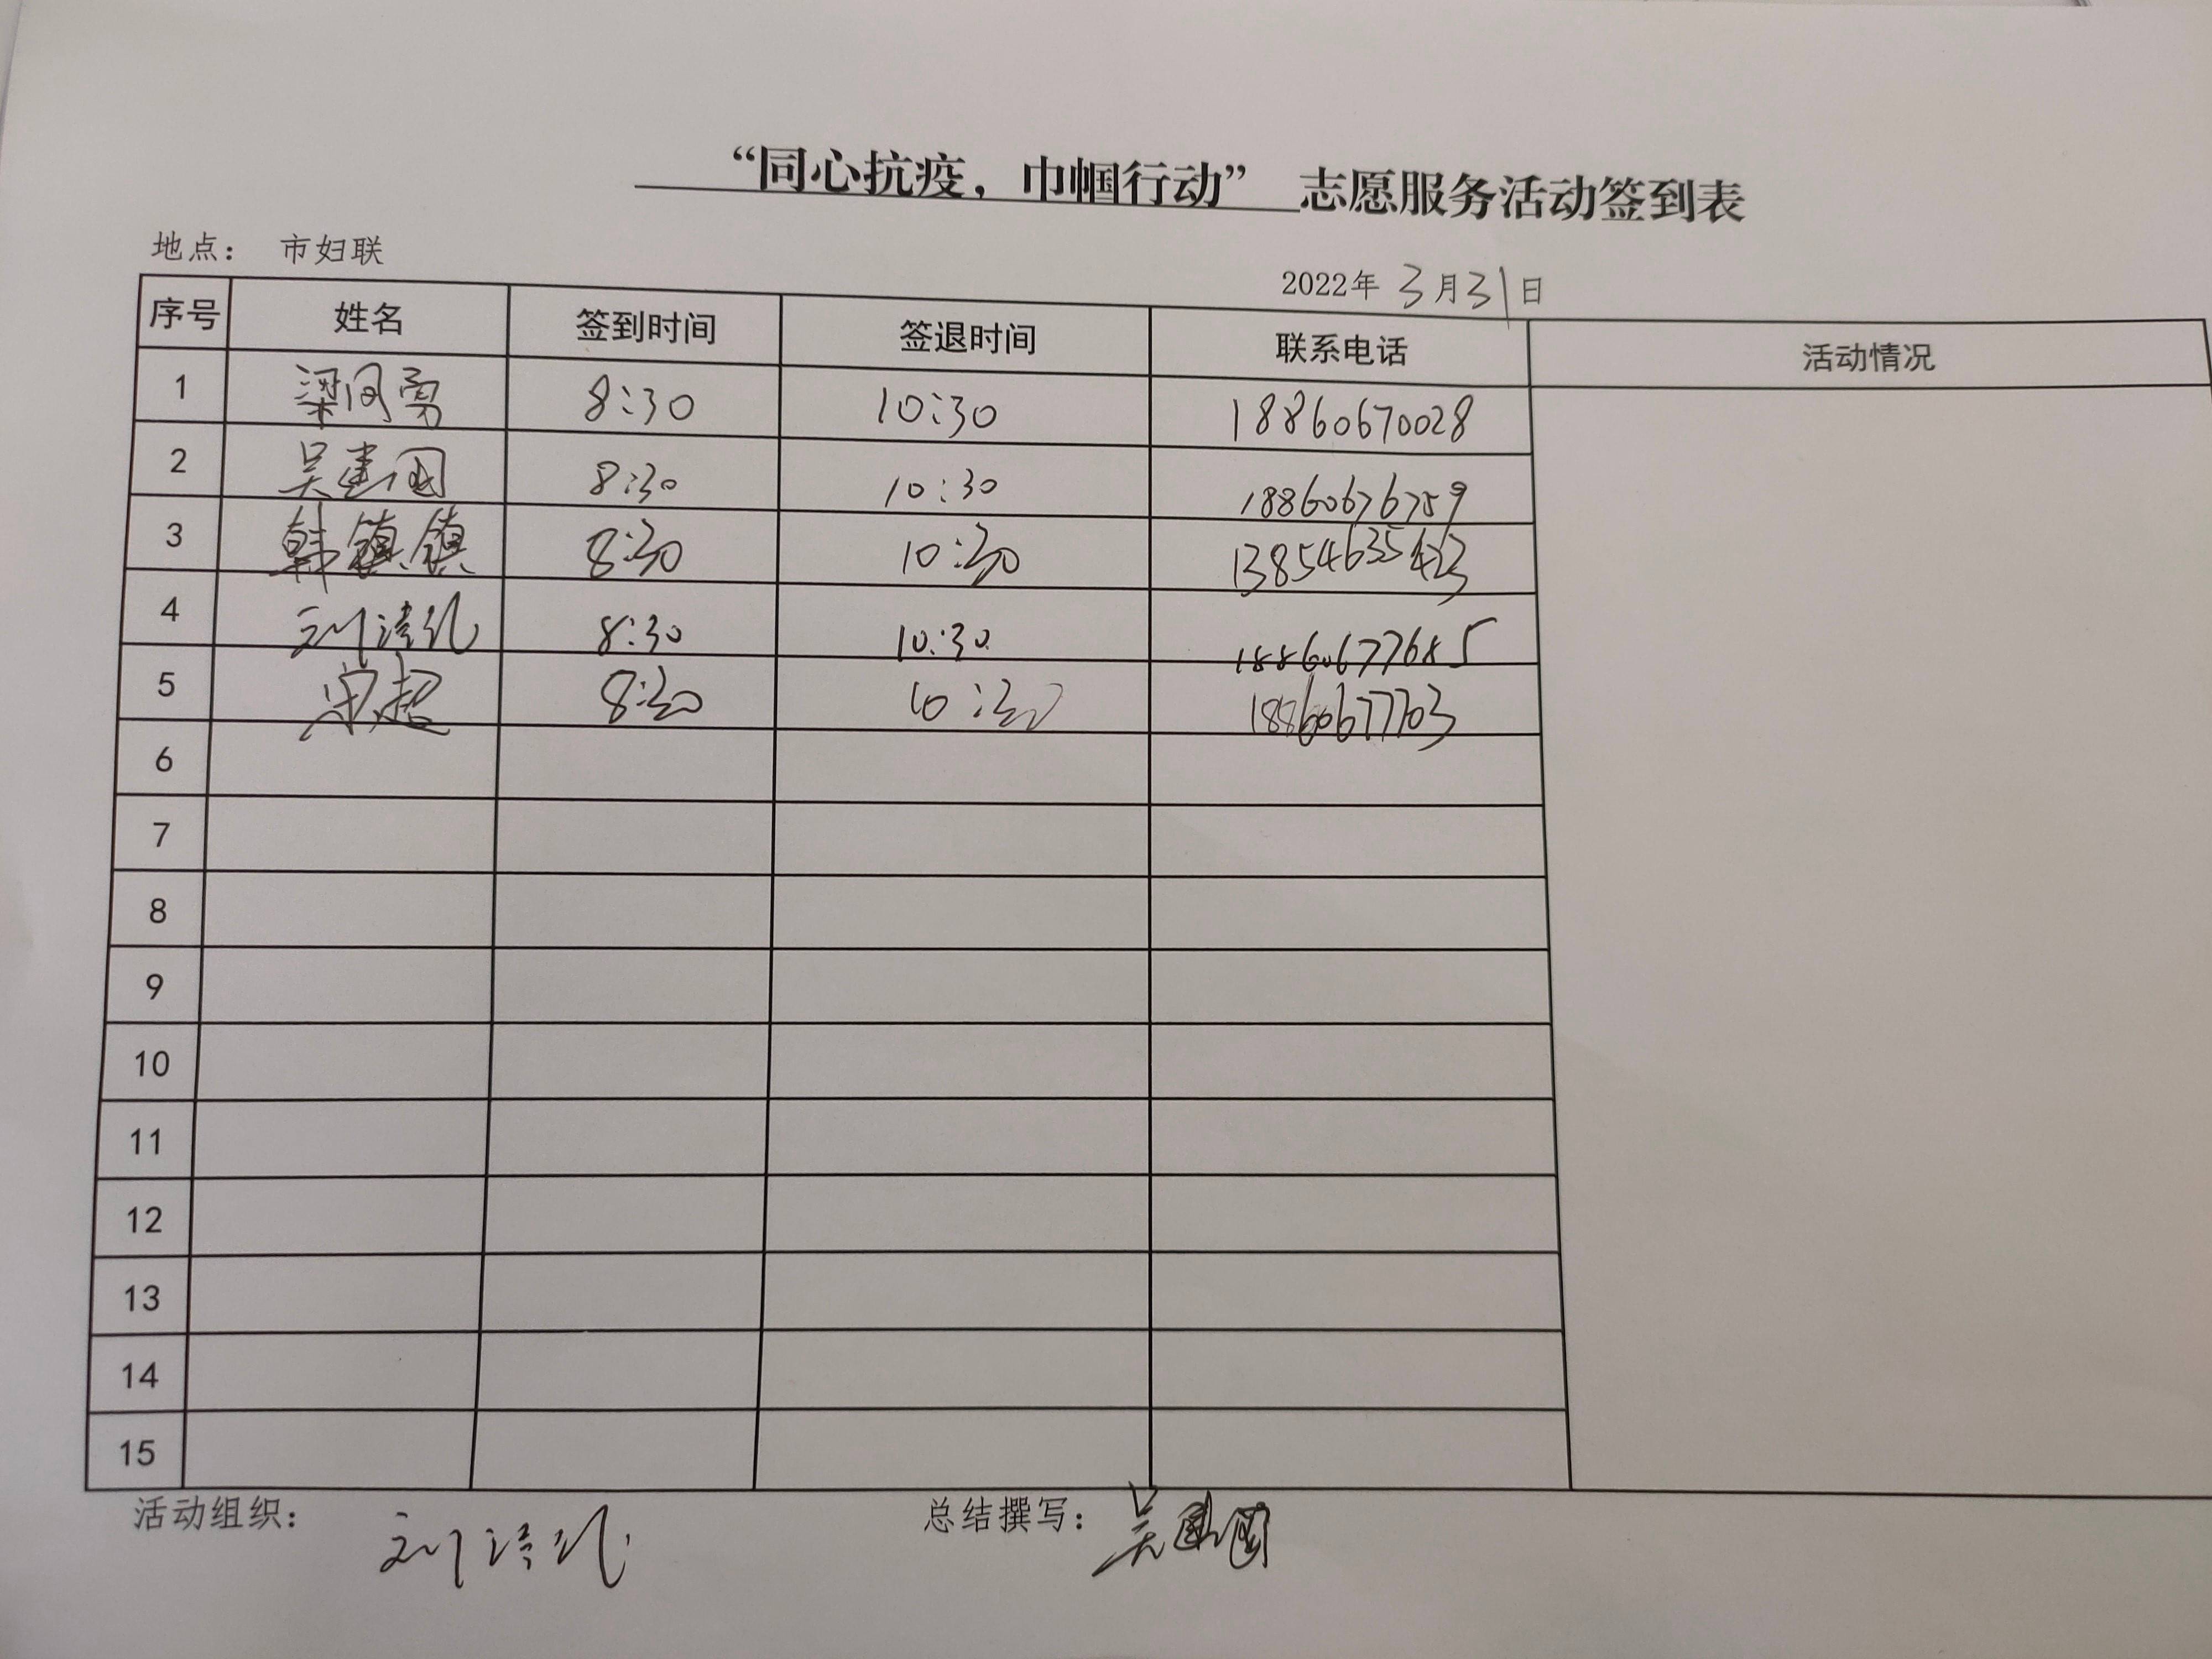 “同心抗疫，巾帼行动” 志愿服务活动签到表
地点： 市妇联
2022年 3月31日
序号 姓名 签到时间 签退时间 联系电话 活动情况
1 梁同勇 8:30 10:30 18860670028
2 吴建国 8:30 10:30 18860676759
3 韩镇镇 8:30 10:30 13854635423
4 刘洁 8:30 10:30 18860677685
5 宋超 8:30 10:30 18860677703
6
7
8
9
10
11
12
13
14
15
活动组织： 刘洁 总结撰写： 吴建国